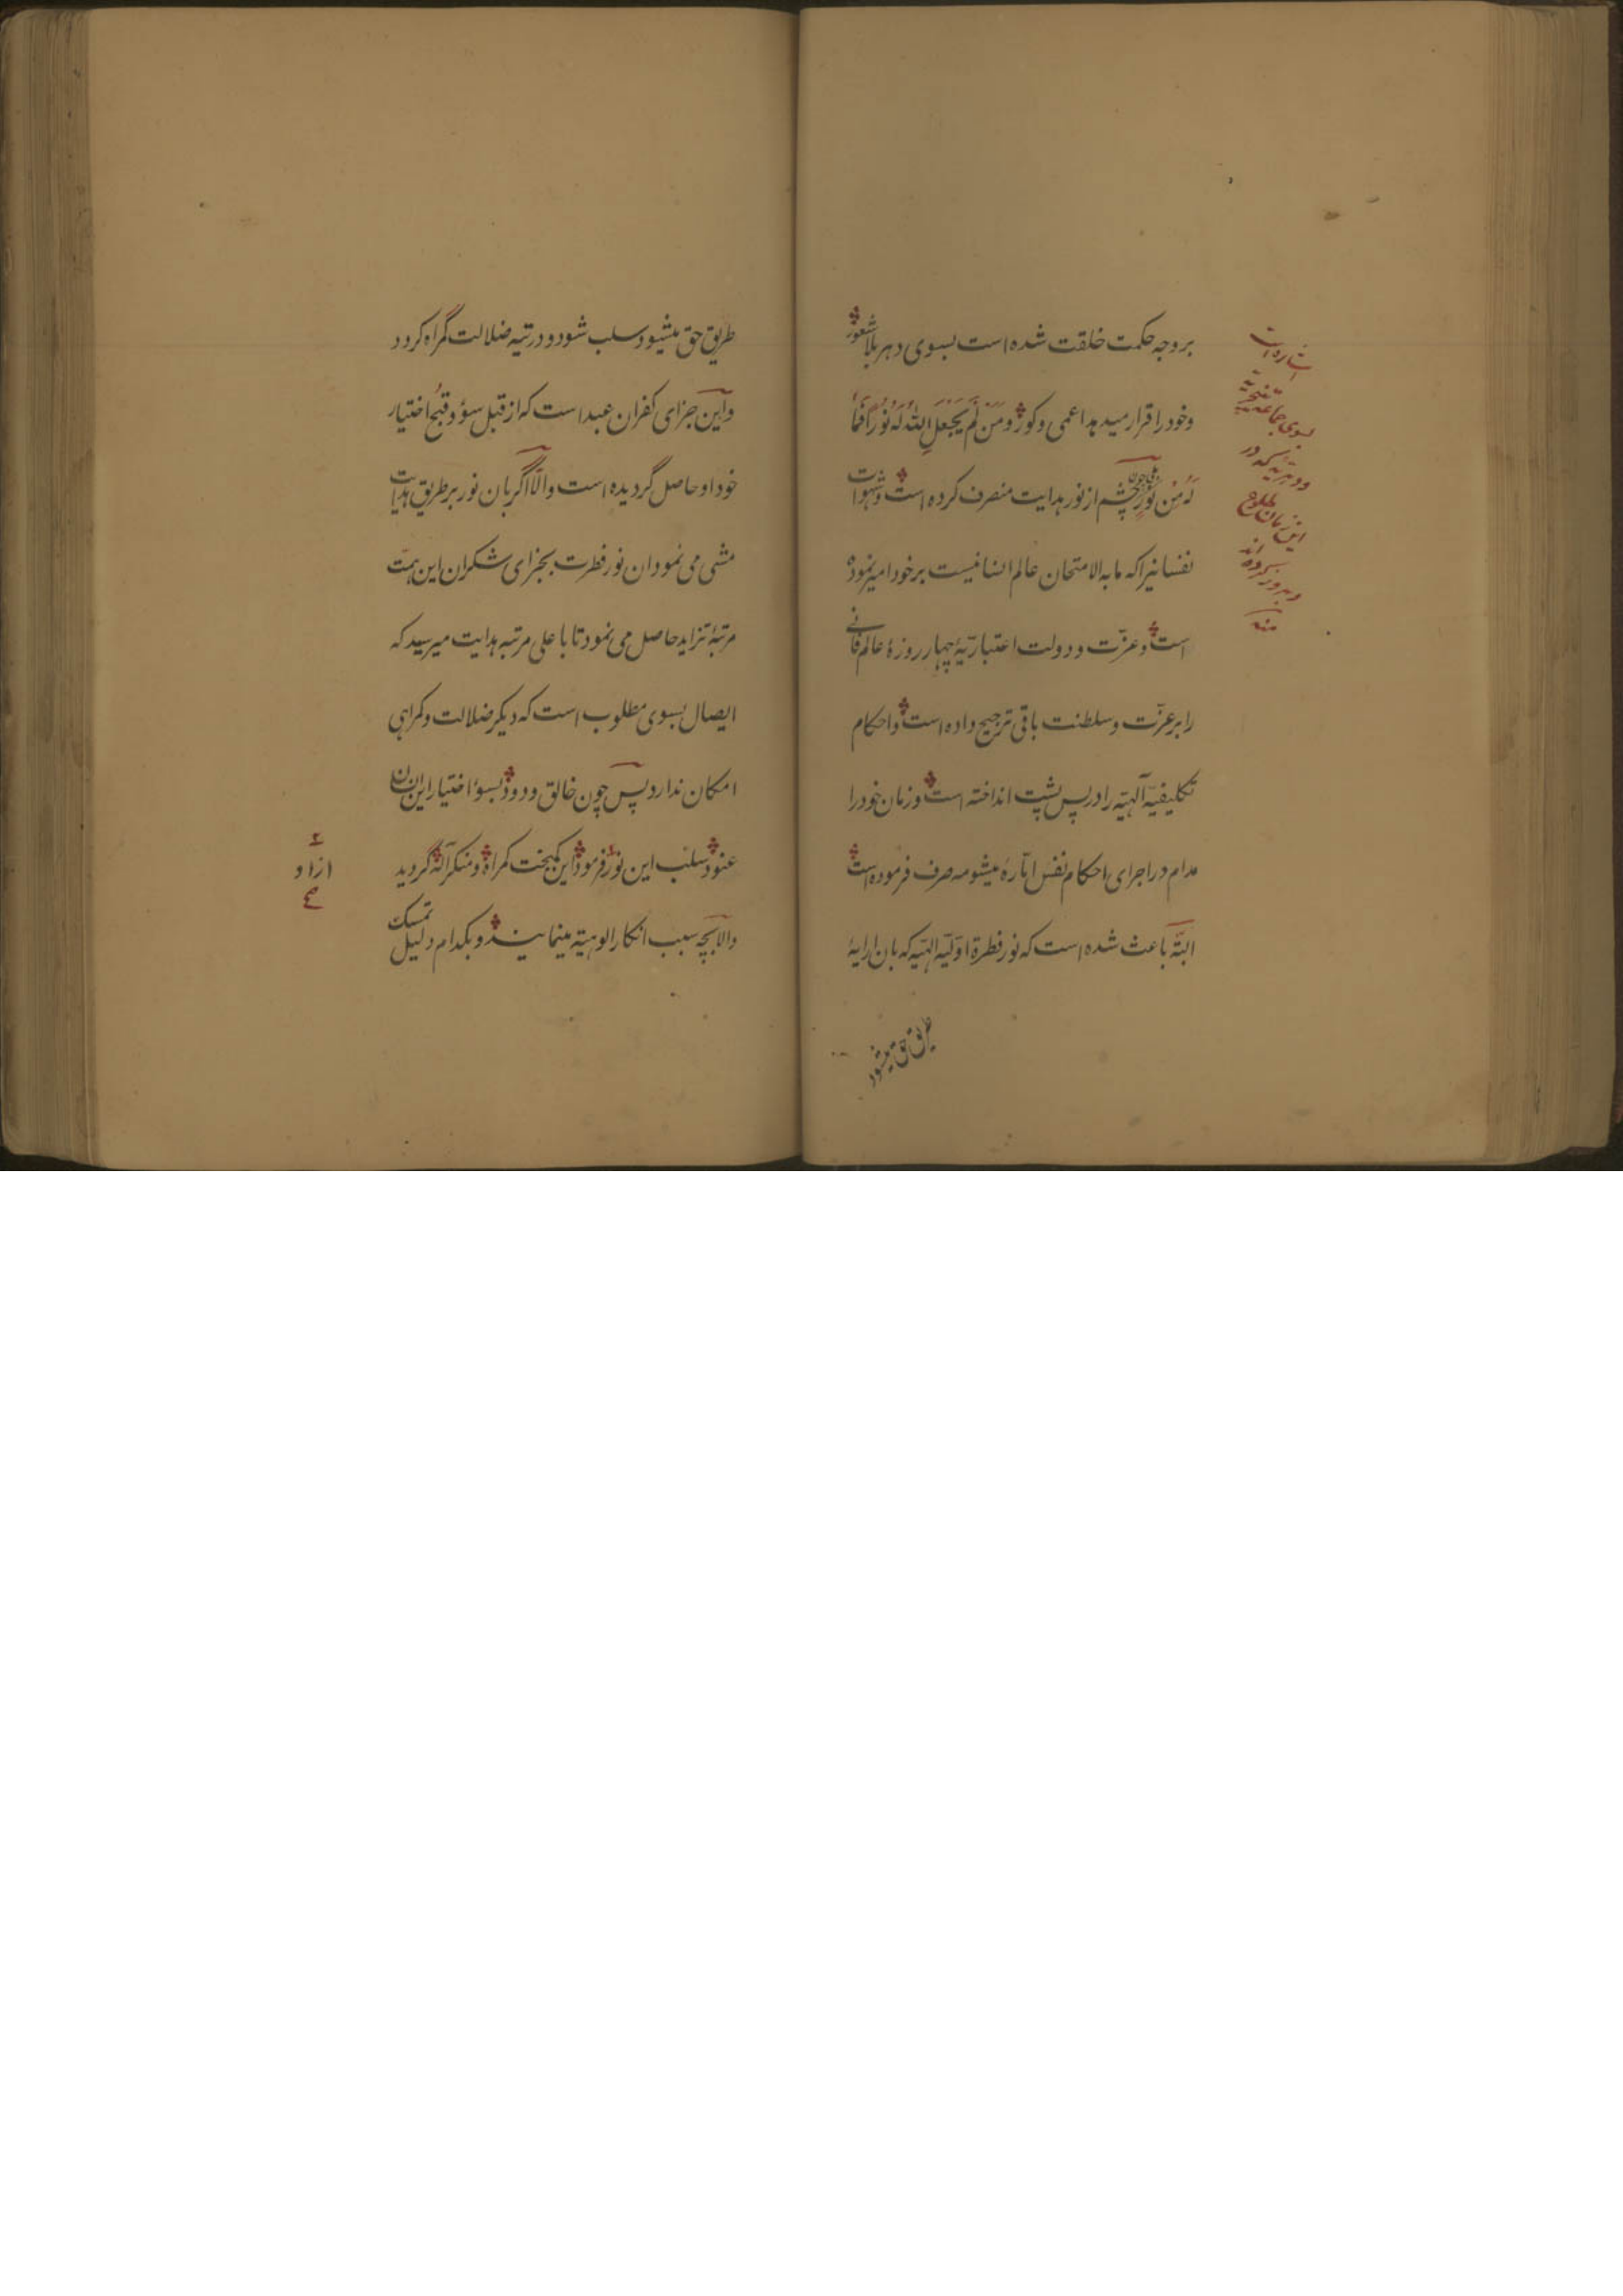 بر وجه حکمت خلقت شده است بسوی دهر بلا شعور
وخود را قرار میدهد اعمی وکور وَمَن لَّم یَجعَلِ اللهُ لَهُ نُورًا فَمَا
لَهُ مِن نُورٍ چون چشم از نور هدایت منصرف کرده است وشهوات
نفسانیرا که مابه الامتحان عالم انسانیست بر خود امیر نموده
است وعزّت ودولت اعتباریّهٔ چهار روزهٔ عالم فانی
را بر عزّت وسلطنت باقی ترجیح داده است واحکام
تکلیفیّه آلهیّه را در پس پشت انداخته است وزمان خود را
مدام در اجرای احکام نفس امّارهٔ میشومه صرف فرموده است
البتّه باعث شده است که نور فطرة اوّلیّه الهیّه که بان ارایهٔ
طریق حق میشود
اشاره است
بسوی جماعة
ودهریّه که در
این زمان طلوع
وبروز کرده اند
منه
طریق حق میشود سلب شود ودر تیه ضلالت گمراه کردد
واین جزای کفران عبد است که از قبل سؤ وقبُح اختیار
خود او حاصل گردیده است والّا اگر بان نور بر طریق هدایت
مشی می نمود ان نور فطرت بجزای شکران این همّت
مرتبهٔ تزاید حاصل می نمود تا با علی مرتبه هدایت میرسید که
ایصال بسوی مطلوب است که دیکر ضلالت وکمراهی
امکان ندارد پس چون خالق ودود بسوٴ اختیار این انسان
عنود سلب این نور فرمود این کمبخت کمراه ومنکر آله گردید
والا بچه سبب انکار الوهیّة مینمایند وبکدام دلیل تمسک
ازاد